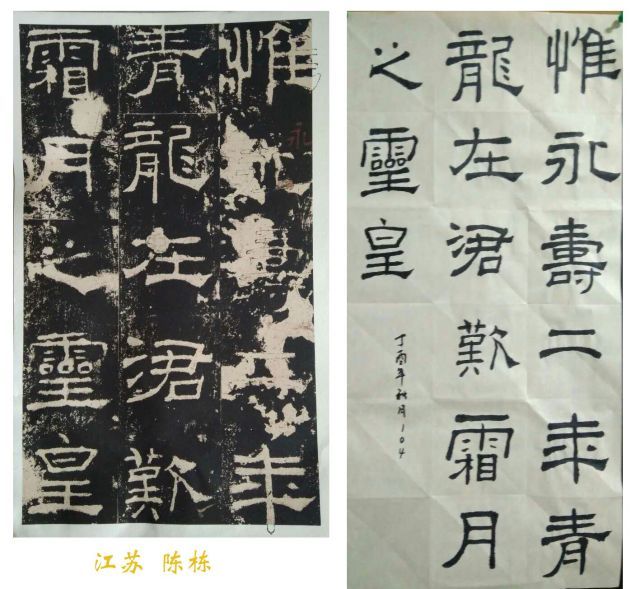 惟永壽二年
青龍在涒歎
霜月之靈皇
永
惟永壽二年青
龍在涒歎霜月
之靈皇
丁酉年秋月104
江苏 陈栋